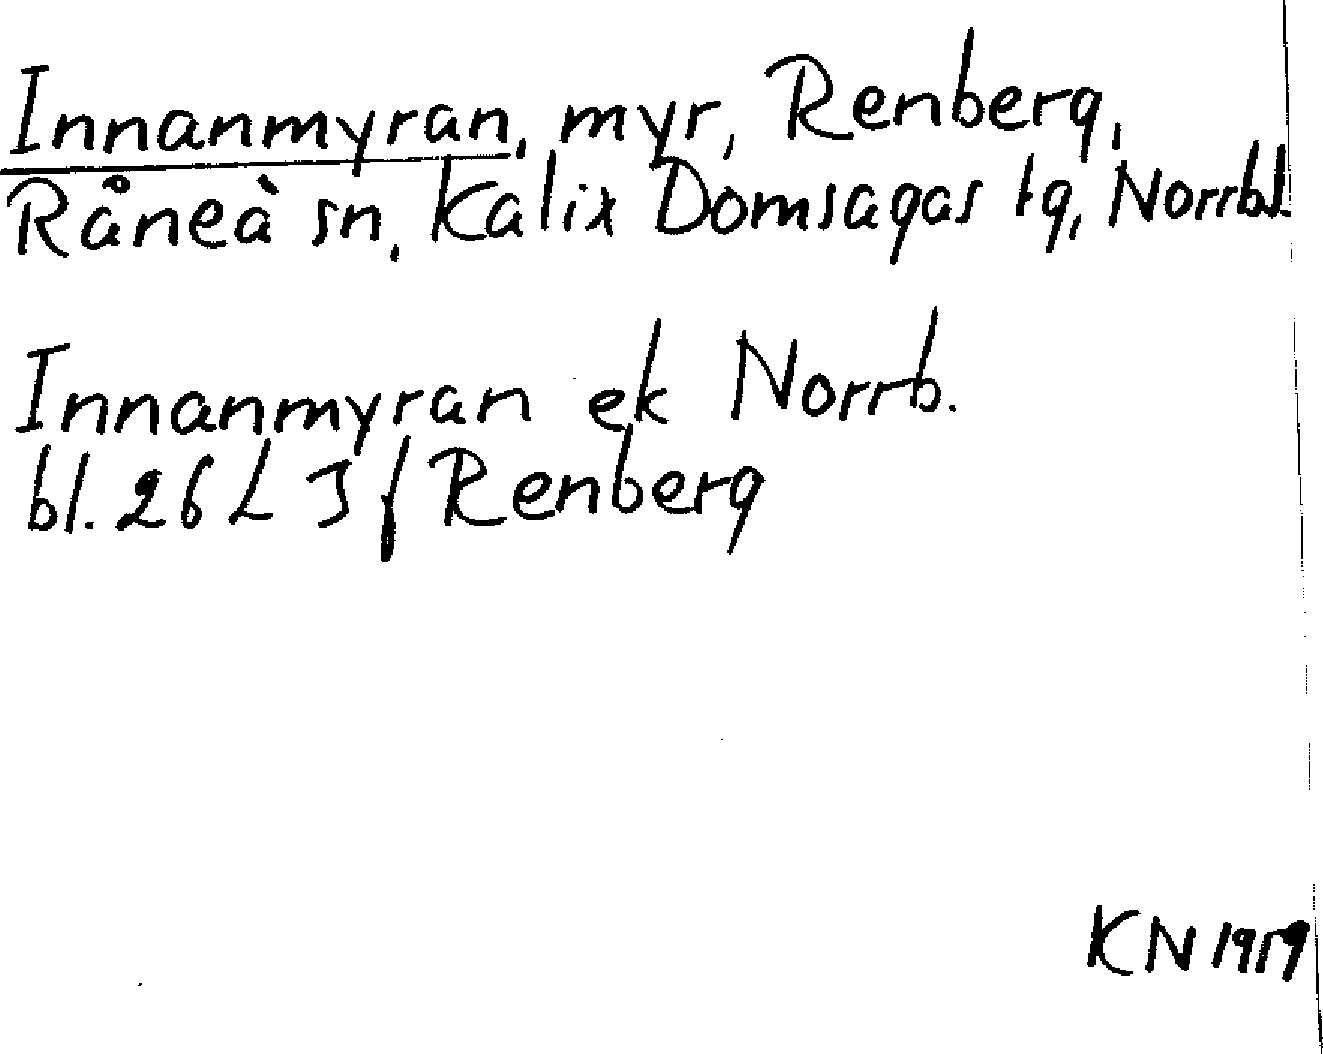 Innanmyran, myr, Renberg,
Råneå sn, Kalix Domsagas tg, Norrbl.
Innanmyran ek Norrb.
bl. 26 L J f Renberg
KN 1959